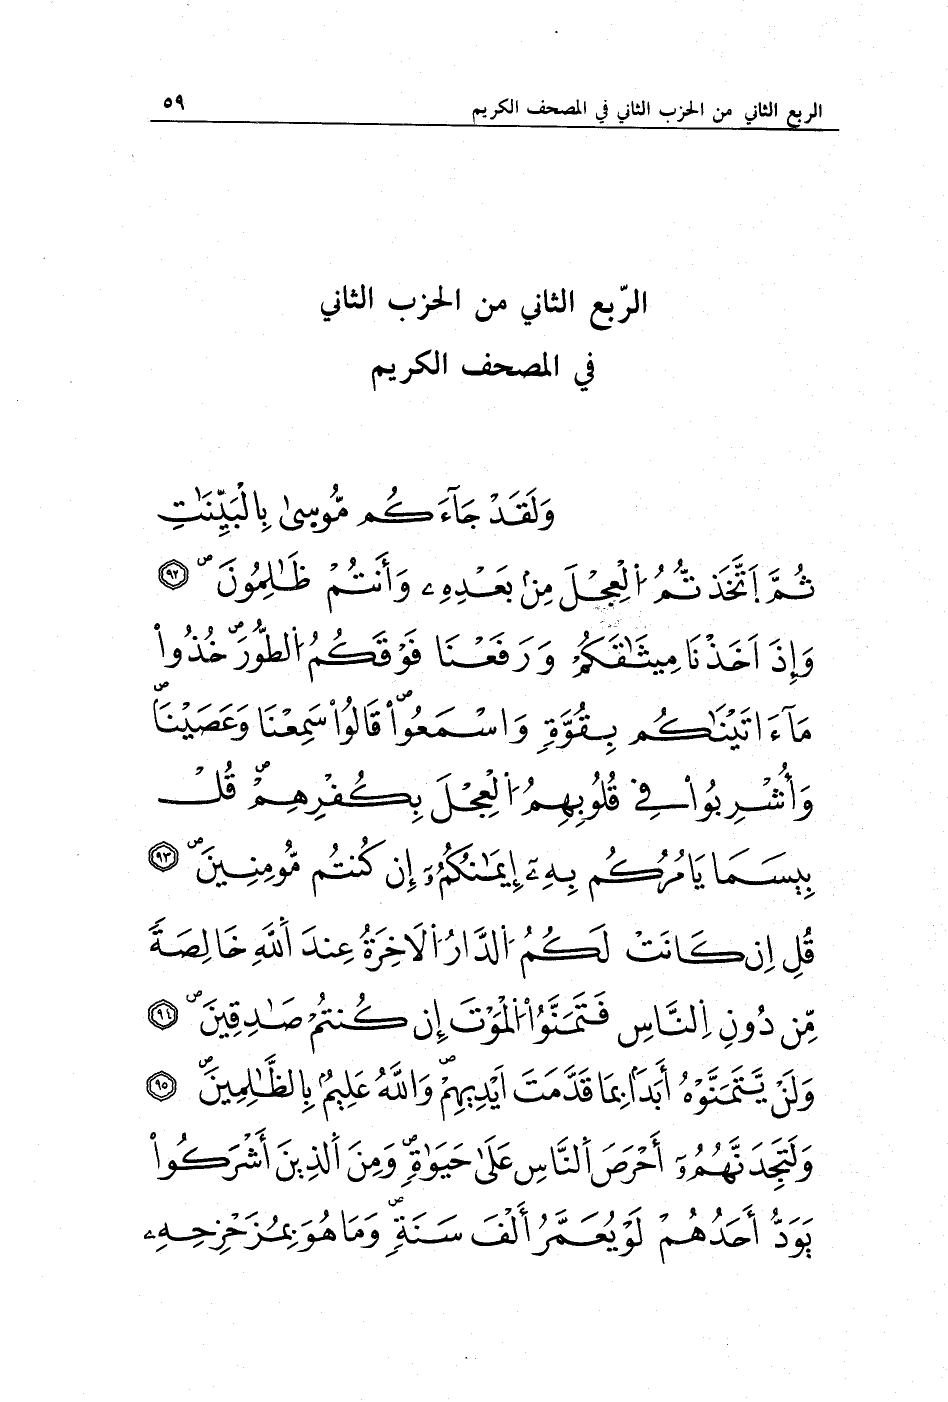 الربع الثاني من الحزب الثاني في المصحف الكريم ٥٩
الرّبع الثاني من الحزب الثاني
في المصحف الكريم
وَلَقَدْ جَآءَكُم مُّوسىٰ بِالْبَيِّنَٰتِ
ثُمَّ اَتَّخَذتُّمُ اُلْعِجْلَ مِنۢ بَعْدِهِۦ وَأَنتُمْ ظَٰلِمُونَۖ ٩٢
وَإِذَ اَخَذْنَا مِيثَٰقَكُمْ وَرَفَعْنَا فَوْقَكُمُ اُلطُّورَۖ خُذُواْ
مَآ ءَاتَيْنَٰكُم بِقُوَّةٖ وَاسْمَعُواْۖ قَالُواْ سَمِعْنَا وَعَصَيْنَاۖ
وَأُشْرِبُواْ فِے قُلُوبِهِمُ اُلْعِجْلَ بِكُفْرِهِمْۖ قُلْ
بِيسَمَا يَامُرُكُم بِهِۦٓ إِيمَٰنُكُمُۥٓ إِن كُنتُم مُّومِنِينَۖ ٩٣
قُلِ اِن كَانَتْ لَكُمُ اُلدَّارُ اُلَاخِرَةُ عِندَ اَللَّهِ خَالِصَةٗ
مِّن دُونِ اِلنَّاسِ فَتَمَنَّوُاْ اُلْمَوْتَ إِن كُنتُمْ صَٰدِقِينَۖ ٩٤
وَلَنْ يَّتَمَنَّوْهُ أَبَدَاۢ بِمَا قَدَّمَتَ اَيْدِيهِمْۖ وَاللَّهُ عَلِيمُۢ بِالظَّٰلِمِينَۖ ٩٥
وَلَتَجِدَنَّهُمُۥٓ أَحْرَصَ اَلنَّاسِ عَلَىٰ حَيَوٰةٖۖ وَمِنَ اَلذِينَ أَشْرَكُواْ
يَوَدُّ أَحَدُهُمْ لَوْ يُعَمَّرُ أَلْفَ سَنَةٖۖ وَمَا هُوَ بِمُزَحْزِحِهِۦ